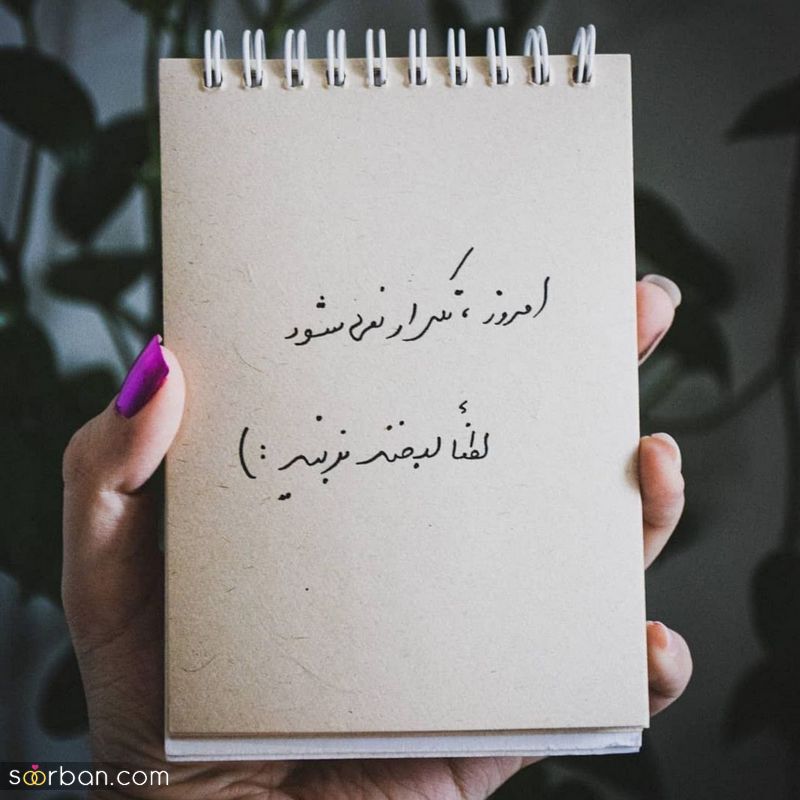 امروز ، تکرار نمی‌شود
لطفاً لبخند بزنید :)
soorban.com